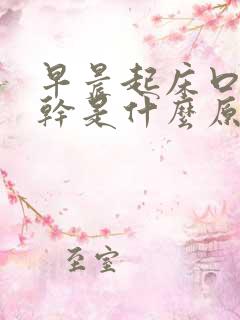 早晨起床口
幹是什麼原
至室